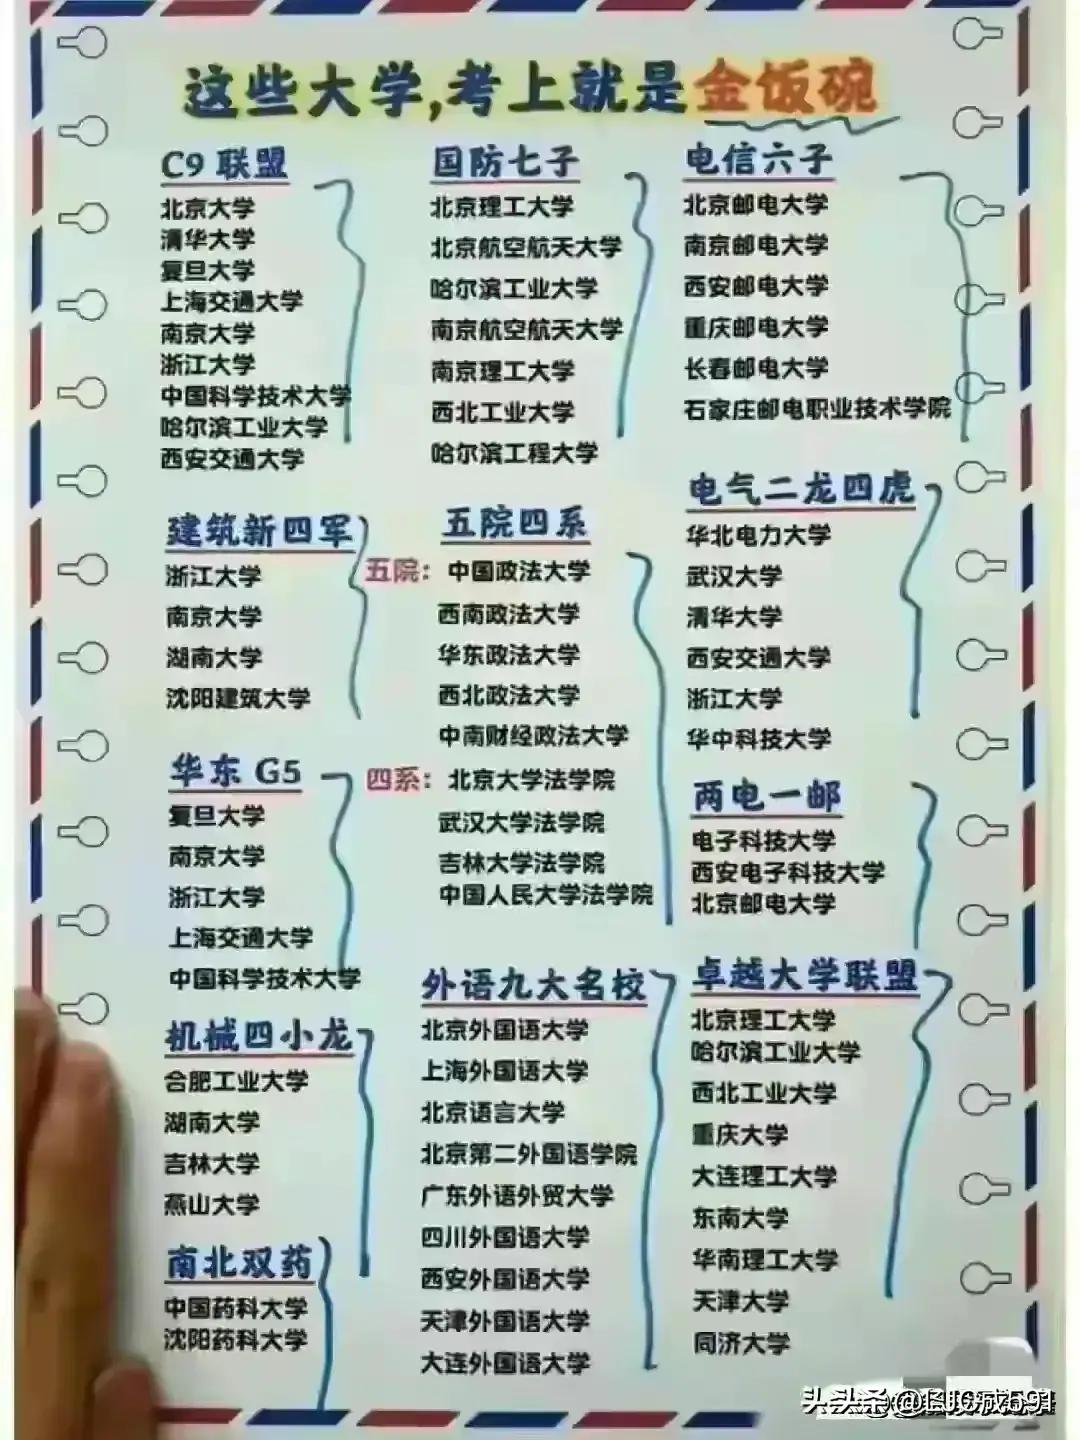 这些大学,考上就是金饭碗
C9 联盟
北京大学
清华大学
复旦大学
上海交通大学
南京大学
浙江大学
中国科学技术大学
哈尔滨工业大学
西安交通大学
国防七子
北京理工大学
北京航空航天大学
哈尔滨工业大学
南京航空航天大学
南京理工大学
西北工业大学
哈尔滨工程大学
电信六子
北京邮电大学
南京邮电大学
西安邮电大学
重庆邮电大学
长春邮电大学
石家庄邮电职业技术学院
建筑新四军
浙江大学
南京大学
湖南大学
沈阳建筑大学
五院四系
五院: 中国政法大学
西南政法大学
华东政法大学
西北政法大学
中南财经政法大学
四系: 北京大学法学院
武汉大学法学院
吉林大学法学院
中国人民大学法学院
电气二龙四虎
华北电力大学
武汉大学
清华大学
西安交通大学
浙江大学
华中科技大学
华东 G5
复旦大学
南京大学
浙江大学
上海交通大学
中国科学技术大学
两电一邮
电子科技大学
西安电子科技大学
北京邮电大学
机械四小龙
合肥工业大学
湖南大学
吉林大学
燕山大学
外语九大名校
北京外国语大学
上海外国语大学
北京语言大学
北京第二外国语学院
广东外语外贸大学
四川外国语大学
西安外国语大学
天津外国语大学
大连外国语大学
卓越大学联盟
北京理工大学
哈尔滨工业大学
西北工业大学
重庆大学
大连理工大学
东南大学
华南理工大学
天津大学
同济大学
南北双药
中国药科大学
沈阳药科大学